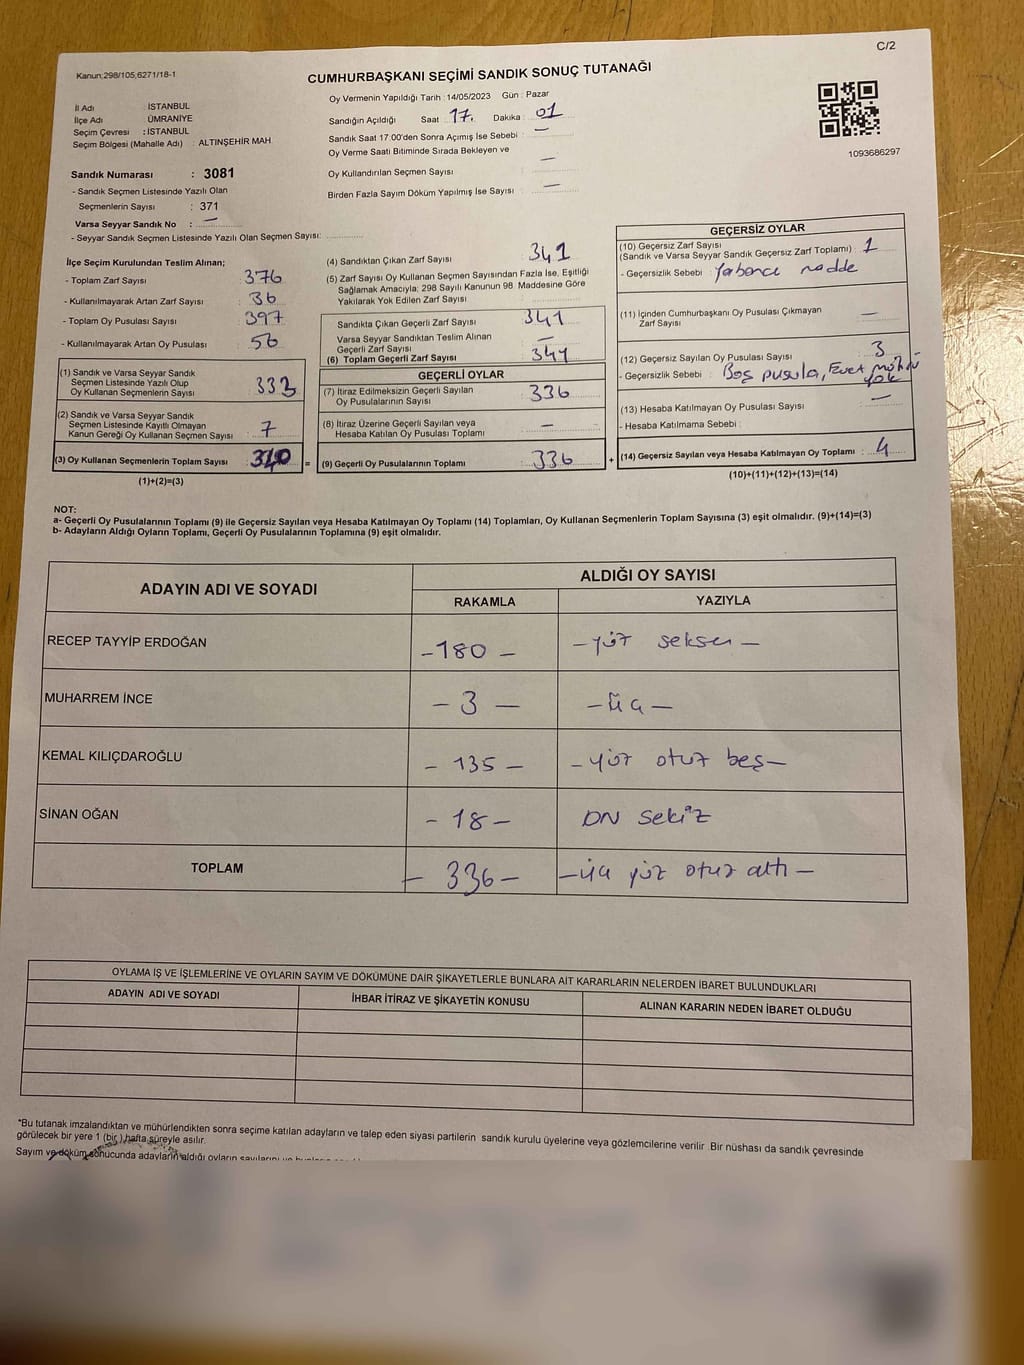 C/2
Kanun:298/105;6271/18-1
CUMHURBAŞKANI SEÇİMİ SANDIK SONUÇ TUTANAĞI
İl Adı : İSTANBUL
İlçe Adı : ÜMRANİYE
Seçim Çevresi : İSTANBUL
Seçim Bölgesi (Mahalle Adı) : ALTINŞEHİR MAH
Sandık Numarası : 3081
- Sandık Seçmen Listesinde Yazılı Olan
Seçmenlerin Sayısı : 371
Varsa Seyyar Sandık No : —
- Seyyar Sandık Seçmen Listesinde Yazılı Olan Seçmen Sayısı:
Oy Vermenin Yapıldığı Tarih : 14/05/2023 Gün : Pazar
Sandığın Açıldığı Saat 17. Dakika : 01
Sandık Saat 17.00'den Sonra Açımış İse Sebebi : —
Oy Verme Saati Bitiminde Sırada Bekleyen ve
Oy Kullandırılan Seçmen Sayısı : —
Birden Fazla Sayım Döküm Yapılmış İse Sayısı : —
1093686297
İlçe Seçim Kurulundan Teslim Alınan;
- Toplam Zarf Sayısı : 376
- Kullanılmayarak Artan Zarf Sayısı : 36
- Toplam Oy Pusulası Sayısı : 397
- Kullanılmayarak Artan Oy Pusulası : 56
(1) Sandık ve Varsa Seyyar Sandık
Seçmen Listesinde Yazılı Olup
Oy Kullanan Seçmenlerin Sayısı : 333
(2) Sandık ve Varsa Seyyar Sandık
Seçmen Listesinde Kayıtlı Olmayan
Kanun Gereği Oy Kullanan Seçmen Sayısı : 7
(3) Oy Kullanan Seçmenlerin Toplam Sayısı : 340 =
(1)+(2)=(3)
(4) Sandıktan Çıkan Zarf Sayısı : 341
(5) Zarf Sayısı Oy Kullanan Seçmen Sayısından Fazla İse, Eşitliği
Sağlamak Amacıyla; 298 Sayılı Kanunun 98. Maddesine Göre
Yakılarak Yok Edilen Zarf Sayısı :
Sandıkta Çıkan Geçerli Zarf Sayısı : 341
Varsa Seyyar Sandıktan Teslim Alınan
Geçerli Zarf Sayısı : —
(6) Toplam Geçerli Zarf Sayısı : 341
GEÇERLİ OYLAR
(7) İtiraz Edilmeksizin Geçerli Sayılan
Oy Pusulalarının Sayısı : 336
(8) İtiraz Üzerine Geçerli Sayılan veya
Hesaba Katılan Oy Pusulası Toplamı : —
(9) Geçerli Oy Pusulalarının Toplamı : 336 +
GEÇERSİZ OYLAR
(10) Geçersiz Zarf Sayısı
(Sandık ve Varsa Seyyar Sandık Geçersiz Zarf Toplamı) : 1
- Geçersizlik Sebebi : Yabancı madde
(11) İçinden Cumhurbaşkanı Oy Pusulası Çıkmayan
Zarf Sayısı : —
(12) Geçersiz Sayılan Oy Pusulası Sayısı : 3
- Geçersizlik Sebebi : Boş pusula, Evet mührü
yok
(13) Hesaba Katılmayan Oy Pusulası Sayısı : —
- Hesaba Katılmama Sebebi :
(14) Geçersiz Sayılan veya Hesaba Katılmayan Oy Toplamı : 4
(10)+(11)+(12)+(13)=(14)
NOT:
a- Geçerli Oy Pusulalarının Toplamı (9) ile Geçersiz Sayılan veya Hesaba Katılmayan Oy Toplamı (14) Toplamları, Oy Kullanan Seçmenlerin Toplam Sayısına (3) eşit olmalıdır. (9)+(14)=(3)
b- Adayların Aldığı Oyların Toplamı, Geçerli Oy Pusulalarının Toplamına (9) eşit olmalıdır.
ADAYIN ADI VE SOYADI
ALDIĞI OY SAYISI
RAKAMLA YAZIYLA
RECEP TAYYİP ERDOĞAN -180 - -yüz seksen-
MUHARREM İNCE - 3 - -üç-
KEMAL KILIÇDAROĞLU - 135 - -yüz otuz beş-
SİNAN OĞAN - 18 - ON sekiz
TOPLAM - 336 - -üç yüz otuz altı -
OYLAMA İŞ VE İŞLEMLERİNE VE OYLARIN SAYIM VE DÖKÜMÜNE DAİR ŞİKAYETLERLE BUNLARA AİT KARARLARIN NELERDEN İBARET BULUNDUKLARI
ADAYIN ADI VE SOYADI İHBAR İTİRAZ VE ŞİKAYETİN KONUSU ALINAN KARARIN NEDEN İBARET OLDUĞU
*Bu tutanak imzalandıktan ve mühürlendikten sonra seçime katılan adayların ve talep eden siyasi partilerin sandık kurulu üyelerine veya gözlemcilerine verilir .Bir nüshası da sandık çevresinde
görülecek bir yere 1 (bir ) hafta süreyle asılır.
Sayım ve döküm sonucunda adayların aldığı oyların sayılarını